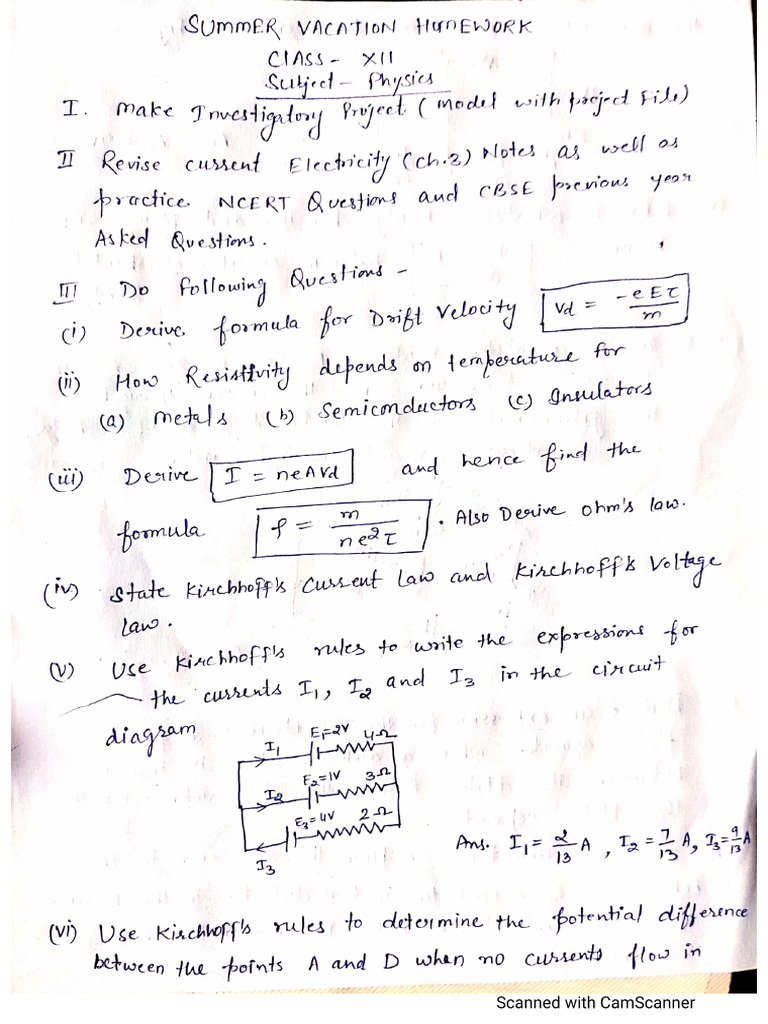 SUMMER VACATION HOMEWORK
CLASS - XII
Subject - Physics
I. Make Investigatory Project ( Model with project File)
II Revise current Electricity (ch.3) Notes as well as
practice NCERT Questions and CBSE previous year
Asked Questions.
III Do Following Questions -
(i) Derive formula for Drift Velocity Vd = -eEτ/m
(ii) How Resistivity depends on temperature for
(a) metals (b) Semiconductors (c) Insulators
(iii) Derive I = neAVd and hence find the
formula ρ = m/ne²τ . Also Derive ohm's law.
(iv) State Kirchhoff's Current Law and Kirchhoff's Voltage
Law.
(v) Use Kirchhoff's rules to write the expressions for
the currents I₁, I₂ and I₃ in the circuit
diagram
I₁ E₁=2V 4Ω
I₂ E₂=1V 3Ω
E₃=4V 2Ω
I₃
Ans. I₁ = 2/13 A , I₂ = 7/13 A, I₃ = 9/13 A
(vi) Use Kirchhoff's rules to determine the potential difference
between the points A and D when no currents flow in
Scanned with CamScanner